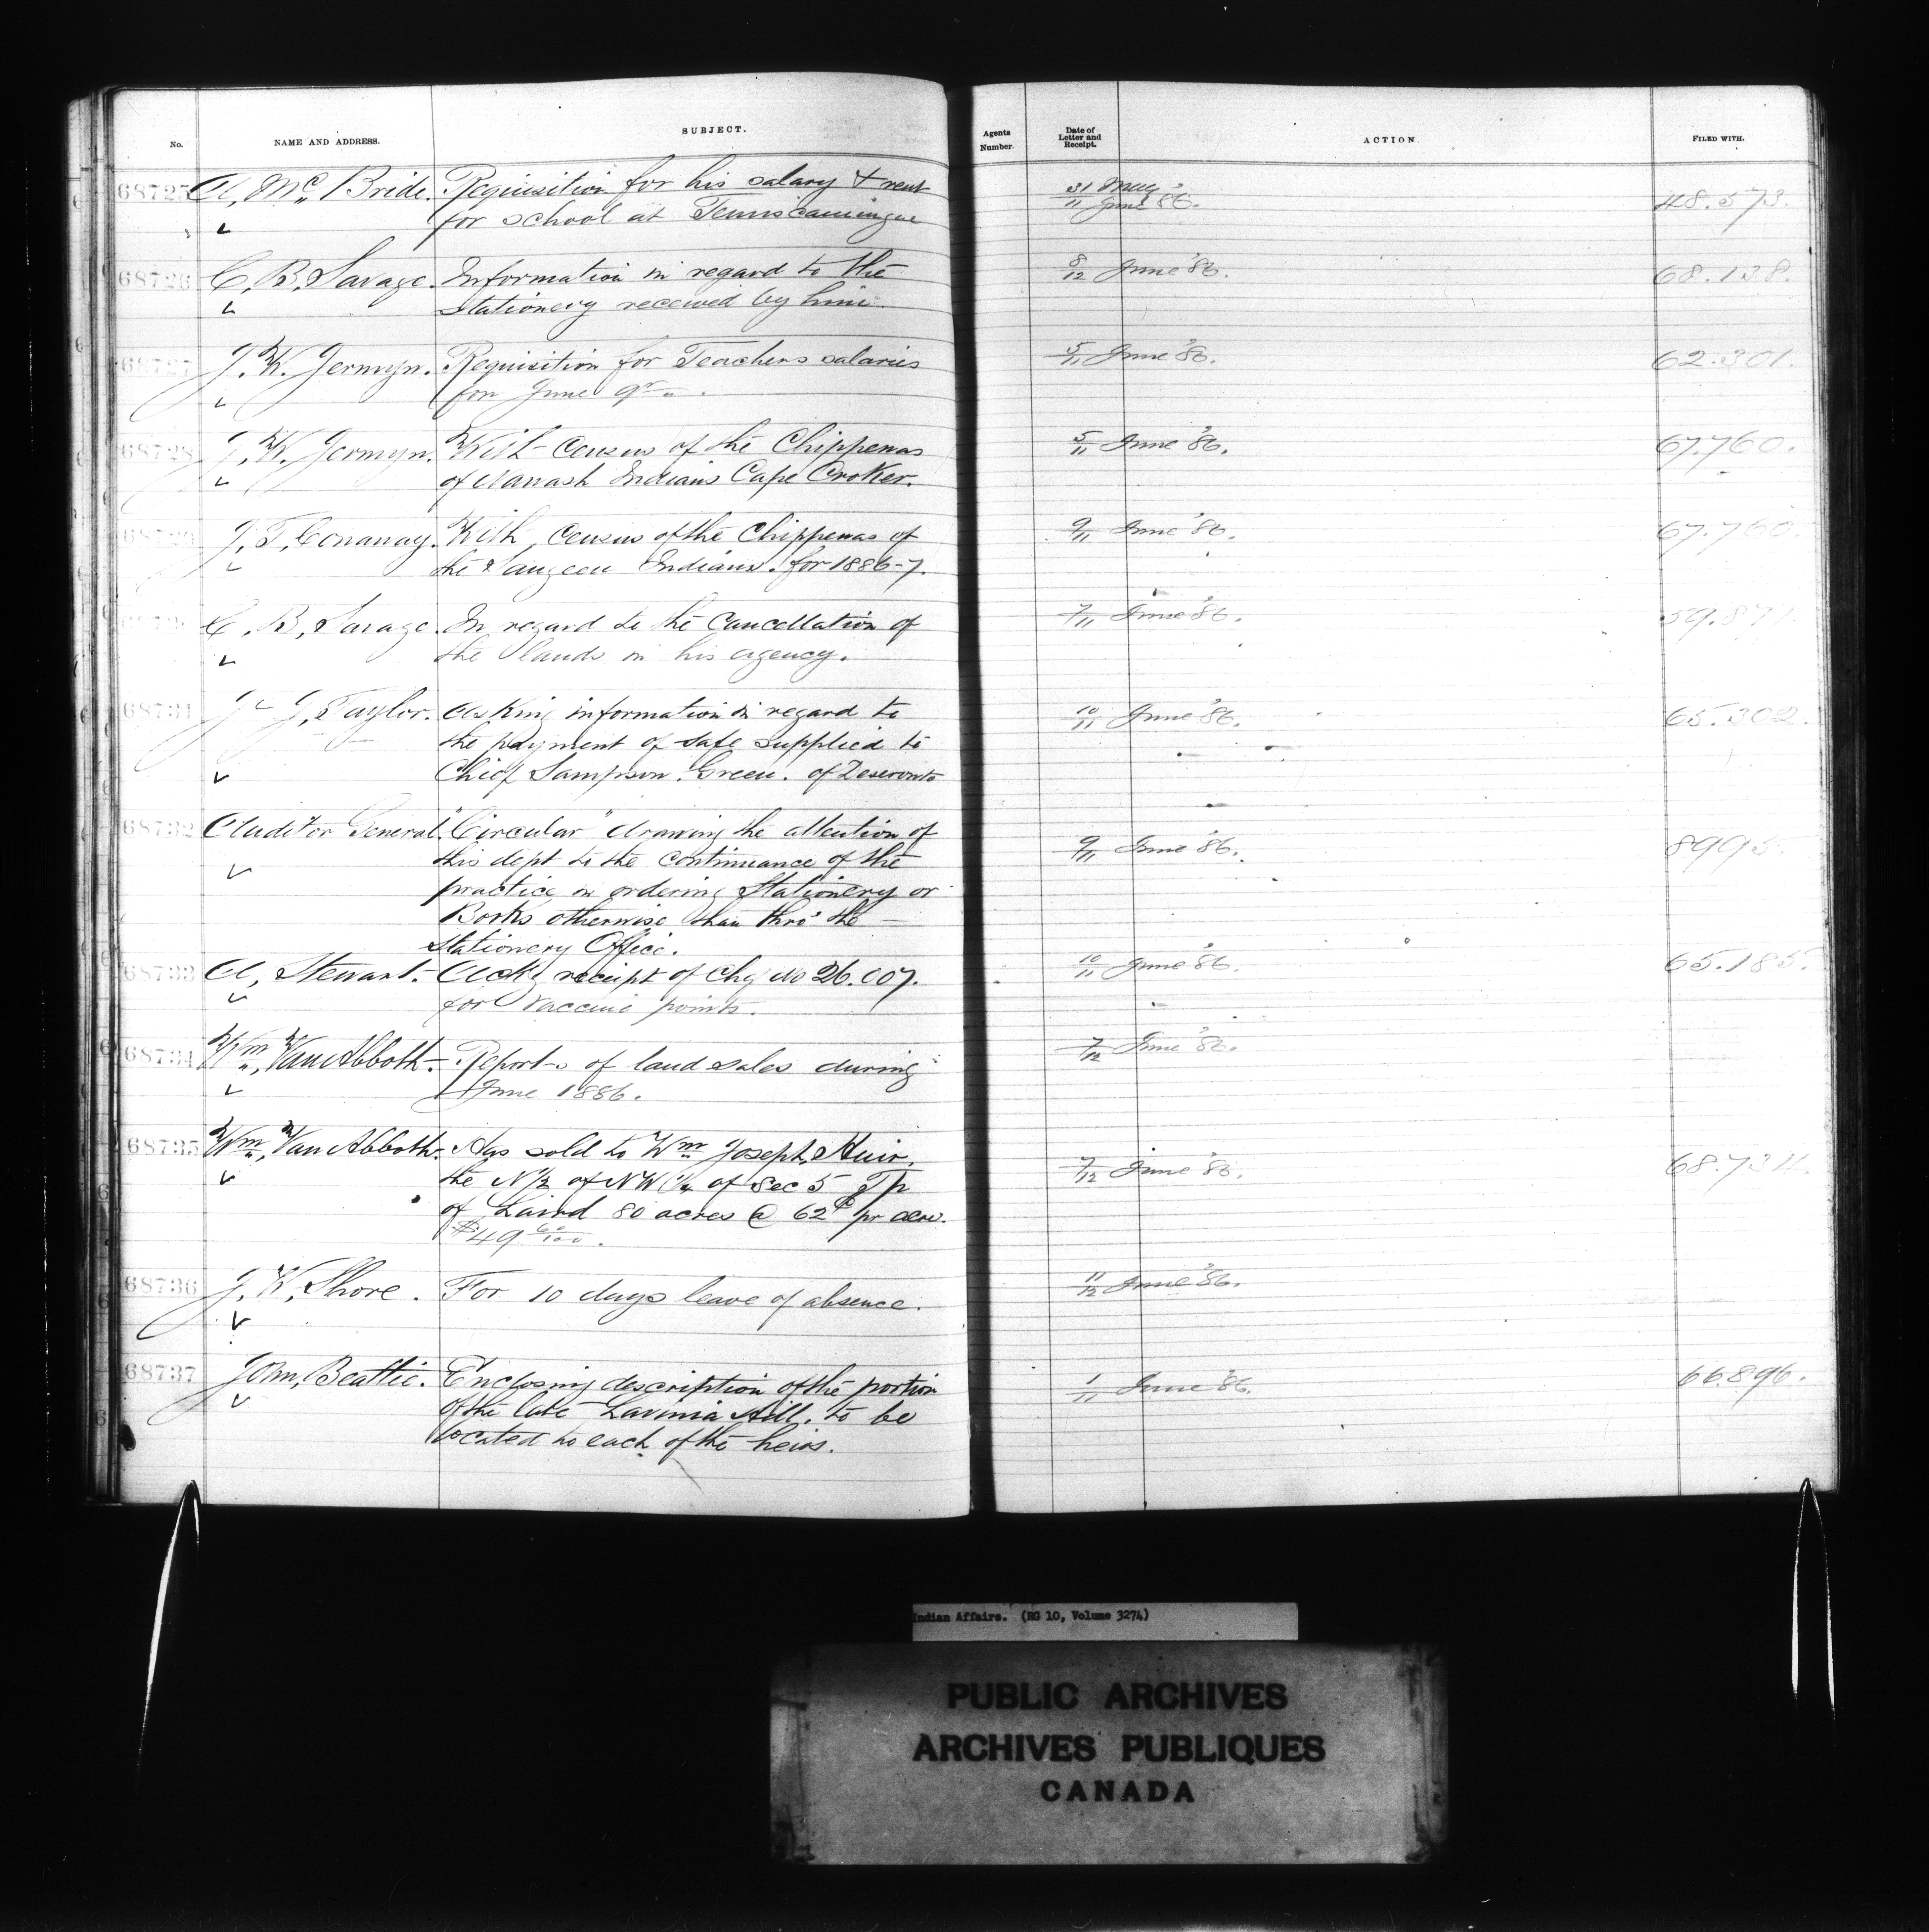 No. NAME AND ADDRESS. SUBJECT. Agents Number. Date of Letter and Receipt. ACTION. FILED WITH.
68725 A, Mc Bride. Requisition for his salary & rent 31 May 48.573.
for school at Temiscamingue 11 June '86.
68726 C, B, Savage. Information in regard to the 8/12 June '86. 68.138.
Stationery received by him
68727 J. W. Jermyn. Requisition for Teachers salaries 5/11 June '86. 62.301.
for June qr.
68728 J. W. Jermyn. With Census of the Chippewas 5/11 June '86. 67.760.
of Nawash Indians Cape Croker.
68729 J, T, Conaway. With, Census of the Chippewas of 9/11 June '86. 67.760.
the Saugeen Indians. for 1886-7.
C, B, Savage. In regard to the Cancellation of 7/11 June '86. 59.871.
the lands in his agency.
68731 J, Taylor. Asking information in regard to 10/11 June '86. 65.302.
the payment of safe supplied to
Chief Sampson Green. of Deseronto
68732 Auditor General. "Circular" drawing the attention of 9/11 June '86. 8995
this dept to the continuance of the
practice in ordering Stationery or
Books otherwise than thro' the
Stationery Office.
68733 A, Stewart. Ackg receipt of Chq No 26.007. 10/11 June '86. 65.185.
for Vaccine points.
68734 Wm, Van Abbott. Reports of land sales during 7/12 June '86.
June 1886.
68735 Wm, Van Abbott. Has sold to Wm Joseph, Muir, 7/12 June '86. 68.734.
the N 1/2 of NW 1/4 of Sec 5 Tp
of Laird 80 acres @ 62c pr acre.
$49 60/100.
68736 J, W, Shore. For 10 days leave of absence. 11/12 June '86.
68737 John, Beattie. Enclosing description of the portion 1/11 June '86. 66.896.
of the late Lavinia Hill. to be
located to each of the heirs.
Indian Affairs. (RG 10, Volume 3274)
PUBLIC ARCHIVES
ARCHIVES PUBLIQUES
CANADA